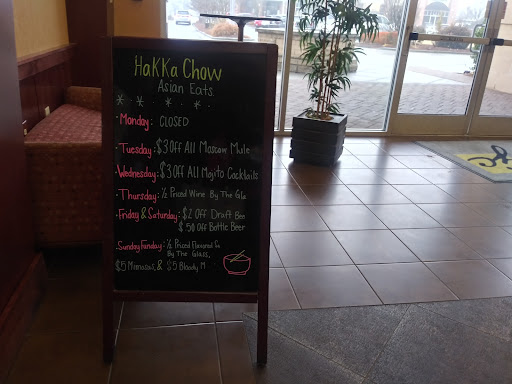 HaKKa Chow
Asian Eats
Monday: CLOSED
Tuesday: $3 Off All Moscow Mule
Wednesday: $3 Off All Mojito Cocktails
Thursday: ½ Priced Wine By The Gla
Friday & Saturday: $1 Off Draft Bee
$.50 Off Bottle Beer
Sunday Funday: ½ Priced Flavored
By The Glass,
$5 Mimosas, & $5 Bloody M